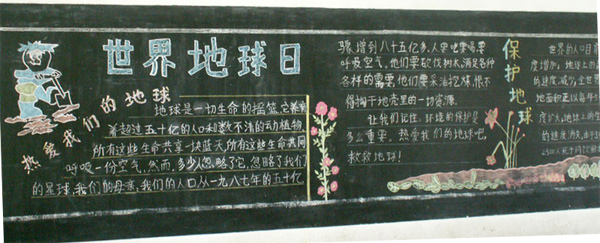 世界地球日
热爱我们的地球
地球是一切生命的摇篮,它养育
着超过五十亿的人口和数不清的动植物,
所有这些生命共享一块蓝天,所有这些生命共同
呼吸一份空气,然而,多少人忽略了它,忽略了我们
的足球,我们的母亲,我们的人口从一九八七年的五十亿
骤增到八十五亿多,人要吃要喝要
呼吸空气,他们要砍伐树木,满足各种
各样的需要,他们要采油挖煤,恨不
得掏干地壳里的一切资源。
让我们记住,环境的保护是
多么重要。热爱我们的地球吧,
救救地球!
保护地球
世界的人口目前
度增加,地球上的
的速度减少,全世界
地面积正以每年
度扩大,地球上的生
的速度消失,由于